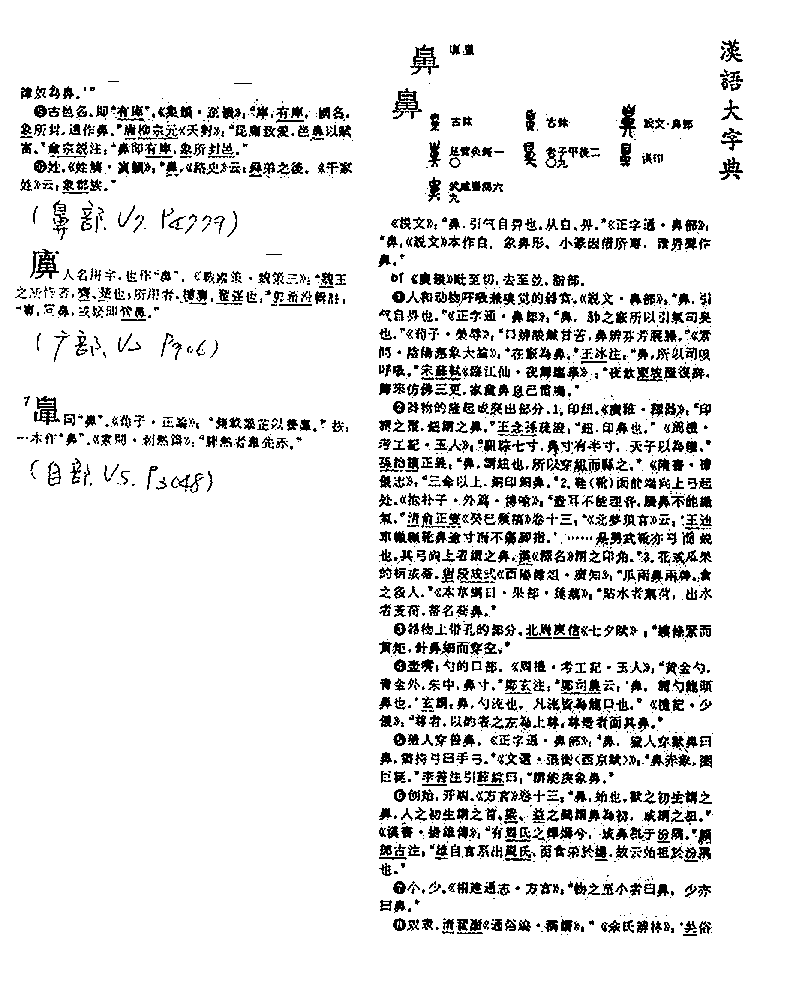 漢語大字典
鼻
鼻
古鉨
古鉨
說文·鼻部
老子甲後二
漢印
〇
〇九
武威醫簡六
九
《説文》：“鼻，引气自畀也。从自、畀。”《正字通·鼻部》：
“鼻，《説文》本作自，象鼻形。小篆因借所專，諧畀聲作
鼻。”
bí 《廣韻》毗至切，去至並。
❶人和动物呼吸兼嗅觉的器官。《説文·鼻部》：“鼻，引
气自畀也。”《正字通·鼻部》：“鼻，肺之竅所以引氣司臭
也。”《荀子·榮辱》：“口辨酸鹹甘苦，鼻辨芬芳腥臊。”《素
問·陰陽應象大論》：“在竅為鼻。”王冰注：“鼻，所以司嗅
呼吸。”宋蘇軾《臨江仙·夜歸臨皋》：“夜飲東坡醒復醉，
歸來仿佛三更，家童鼻息已雷鳴。”
❷器物的隆起或突出部分。1.印纽。《廣雅·釋器》：“印
謂之璽，鈕謂之鼻。”王念孫疏證：“鈕，印鼻也。”《周禮·
考工記·玉人》：“駔琮七寸，鼻寸有半寸，天子以為權。”
孫詒讓正義：“鼻，謂紐也，所以穿組而縣之。”《隋書·禮
儀志》：“三命以上，銅印銅鼻。”2.鞋(靴)面前端向上弓起
处。《抱朴子·外篇·博喻》：“壺耳不能理音，屩鼻不能識
氣。”清俞正燮《癸巳類稿》卷十三：“《北夢瑣言》云：‘王迪
車轍輾靴鼻逾寸而不傷脚指。’……是男式靴亦弓而銳
也。其弓向上者謂之鼻，漢《釋名》謂之卬角。”3.花或瓜果
的柄或蒂。唐段成式《酉陽雜俎·廣知》：“瓜兩鼻兩蒂，食
之殺人。”《本草綱目·果部·蓮藕》：“貼水者藕荷，出水
者芰荷，蒂名荷鼻。”
❸器物上带孔的部分。北周庾信《七夕賦》：“縷條緊而
貫矩，針鼻細而穿空。”
❹壶嘴；勺的口部。《周禮·考工記·玉人》：“黃金勺，
青金外，朱中，鼻寸。”鄭玄注：“鄭司農云：‘鼻，謂勺龍頭
鼻也。’玄謂：鼻，勺流也，凡流皆為龍口也。”《禮記·少
儀》：“尊者，以酌者之左為上尊；尊壺者面其鼻。”
❺猎人穿兽鼻。《正字通·鼻部》：“鼻，獵人穿獸鼻曰
鼻，猶持弓曰手弓。”《文選·張衡〈西京賦〉》：“鼻赤象，圈
巨狿。”李善注引薛綜曰：“謂能戾象鼻。”
❻创始；开端。《方言》卷十三：“鼻，始也。獸之初生謂之
鼻，人之初生謂之首。梁、益之間謂鼻為初，或謂之祖。”
《漢書·揚雄傳》：“有周氏之蟬嫣兮，或鼻祖于汾隅。”顏
師古注：“雄自言系出周氏，而食采於揚，故云始祖於汾隅
也。”
❼小，少。《福建通志·方言》：“物之至小者曰鼻，少亦
曰鼻。”
❽奴隶。清翟灝《通俗編·稱謂》：“《余氏辨林》：‘吳俗
謂奴為鼻。’”
❾古邑名。即“有庳”。《集韻·至韻》：“庳，有庳，國名，
象所封，通作鼻。”唐柳宗元《天對》：“昆庸致愛，邑鼻以賦
富。”童宗説注：“鼻即有庳，象所封邑。”
❿姓。《姓觽·寘韻》：“鼻，《路史》云：舜弟之後。《千家
姓》云：象郡族。”
(鼻部. V7. P4779)
人名用字。也作“鼻”。《戰國策·魏策三》：“魏王
也。”郭希汾
(广部. V2 P906)
7
同“鼻”。《荀子·正論》：
一本作“鼻”。《素問·刺熱論》：“脾熱者鼻先赤。”
(自部. V5. P3048)